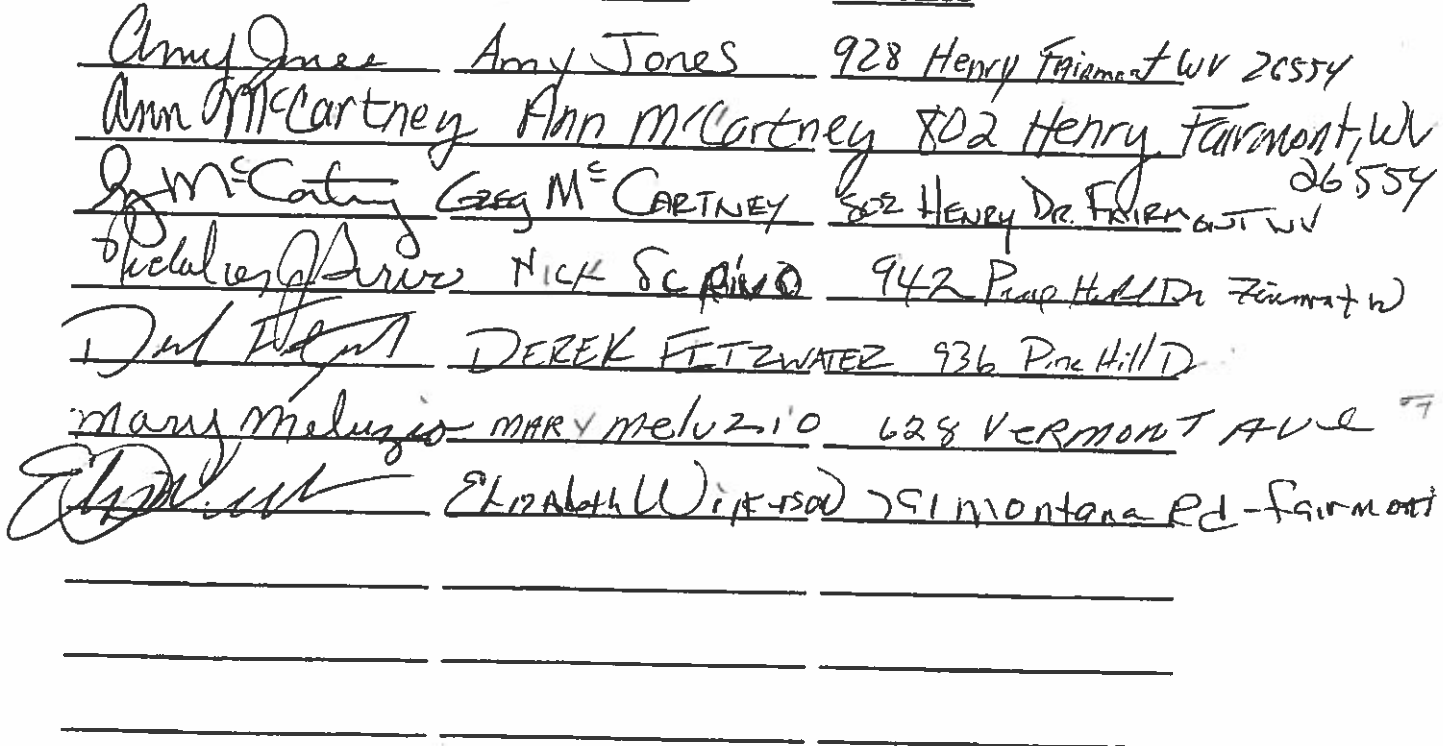 Amy Jones Amy Jones 928 Henry Fairmont WV 26554
Ann McCartney Ann McCartney 802 Henry Fairmont, WV
26554
McCartney Greg McCartney 802 Henry Dr. Fairmont WV
Nick Scrivo 942 Dr Fairmont W
DEREK FITZWATER 936 Pine Hill D
Mary Meluzio MARY Meluzio 628 VERMONT AVE
Elizabeth Wilkerson 791 montana Rd - fairmont